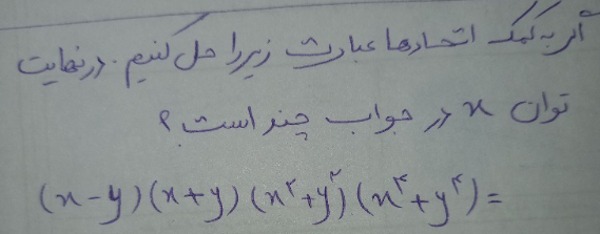 اگر به کمک اتحادها عبارت زیر را حل کنیم. در نهایت
توان x در جواب چند است؟
(x-y)(x+y)(x²+y²)(x⁴+y⁴)=